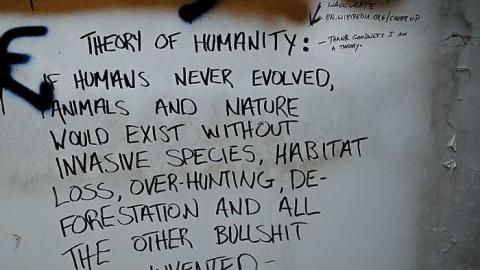 INACCURATE
EN.WIKIPEDIA.ORG/CHEER UP
- THANK GOODNESS I AM
A THEORY.
THEORY OF HUMANITY:
IF HUMANS NEVER EVOLVED,
ANIMALS AND NATURE
WOULD EXIST WITHOUT
INVASIVE SPECIES, HABITAT
LOSS, OVER-HUNTING, DE-
FORESTATION AND ALL
THE OTHER BULLSHIT
INVENTED -